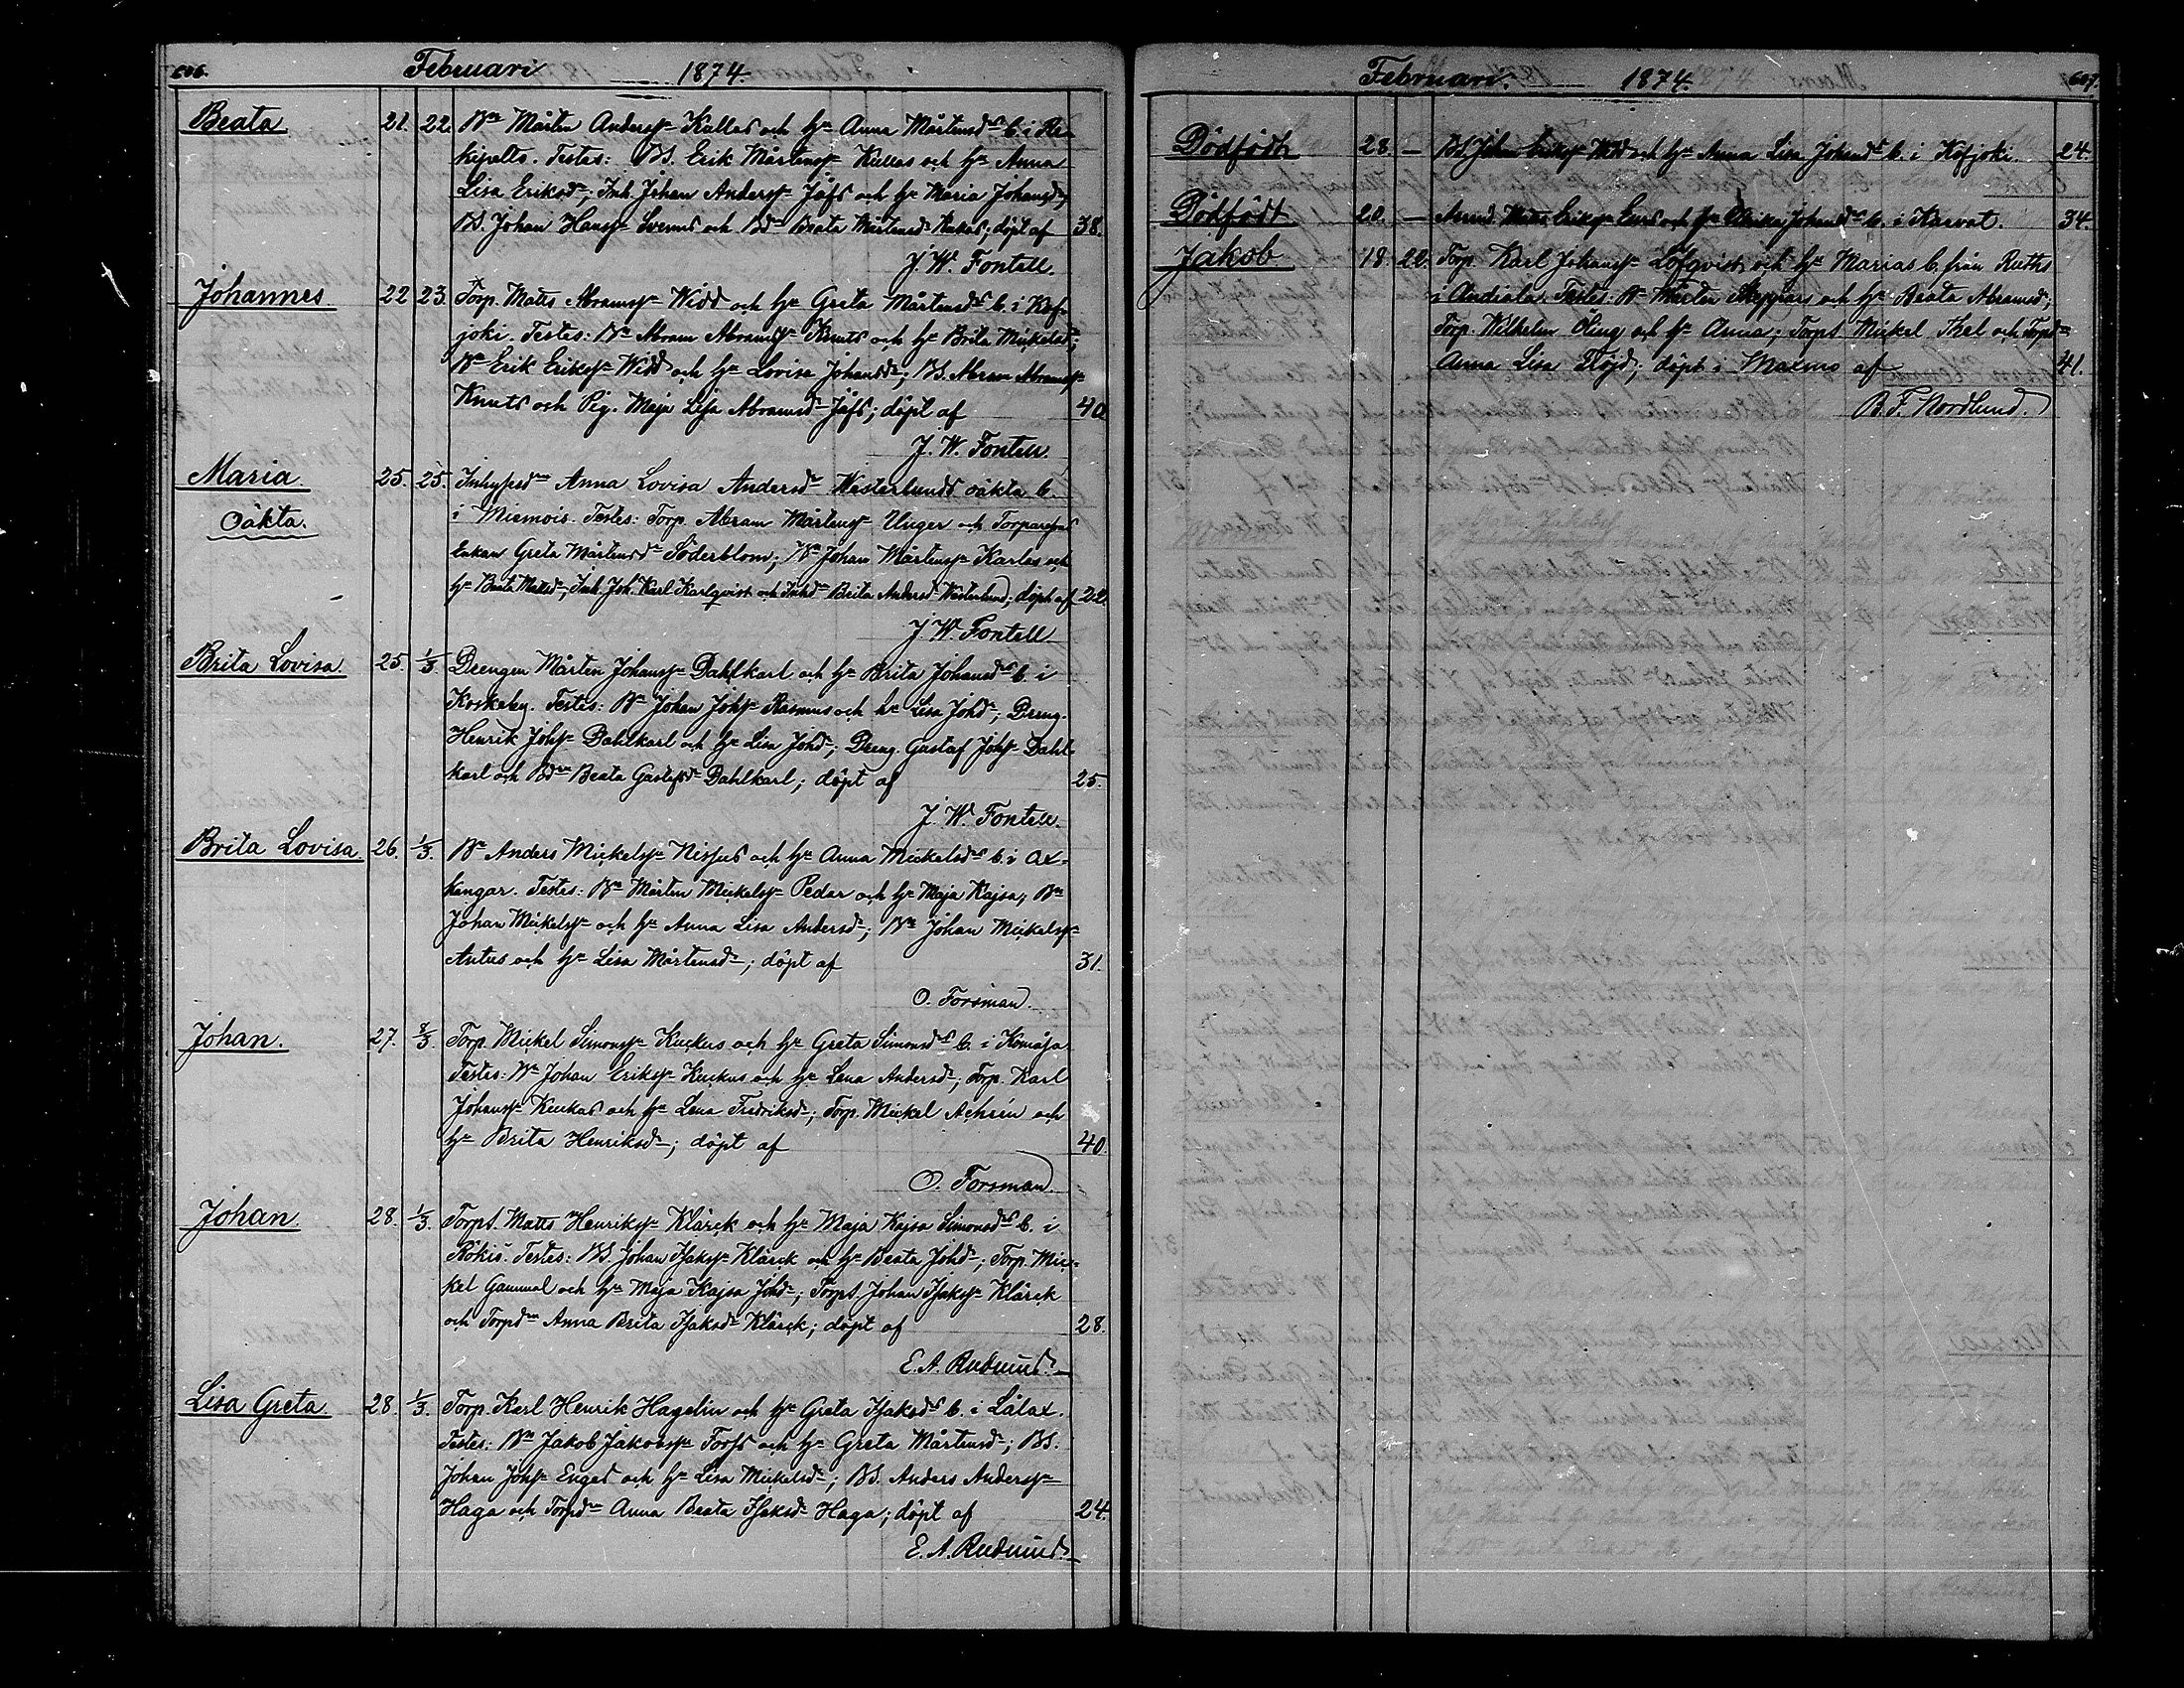 606. Februari 1874.
Beata 21. 22. Bn Mårten Anderss: Kullas och h: Anna Mårtensd:s b. i
kipelto. Testes: BS. Erik Mårtenss: Kullas och h: Anna
Lisa Eriksd:; Inh. Johan Anderss: Jåfs och h: Maria Johansd:;
BS. Johan Hanss: Svenns och Bd: Beata Mårtensd: Kukas; döpt af 38.
J. W. Fontell.
Johannes 22 23. Torp. Matts Abramss: Widd och h: Greta Mårtensd:s b. i Kof-
joki. Testes: Bn Abram Abramss: Knuts och h: Brita Mickelsd:;
Bn Erik Erikss: Widd och h: Lovisa Johansd:; BS. Abram Abramss:
Knuts och Pig. Maja Lisa Abramsd: Jåfs; döpt af 40
J. W. Fontell.
Maria 25. 25. Inhysesd: Anna Lovisa Andersd: Westerlunds oäkta b.
Oäkta. i Miemois. Testes: Torp. Abram Mårtenss: Unger och Torpare
Enkan Greta Mårtensd: Söderblom; Bn Johan Mårtenss: Karlas och
h: Beata Mattsd:; Inh. Joh. Karl Karlqvist och Inhd: Brita Andersd: Westerlund; döpt af 22.
J. W. Fontell
Brita Lovisa 25. 1/3. Drengen Mårten Johanss: Dahlkarl och h: Brita Johansd:s b. i
Koskeby. Testes: Bn Johan Johs: Rasmus och h: Lisa Johd:; Dreng.
Henrik Johs: Dahlkarl och h: Lisa Johd:; Dreng. Gustaf Johs: Dahl-
karl och Bd: Beata Gustafsd: Dahlkarl; döpt af 25.
J. W. Fontell.
Brita Lovisa. 26. 1/3. Bn Anders Mickelss: Nissus och h: Anna Mickelsd:s b. i Ox-
kangar. Testes: Bn Mårten Mickelss: Pedar och h: Maja Kajsa; Bn
Johan Mickelss: och h: Anna Lisa Andersd:; Bn Johan Mickelss:
Antus och h: Lisa Mårtensd:; döpt af 31.
O. Forsman.
Johan. 27. 8/3. Torp. Mickel Simonss: Kuckus och h: Greta Simonsd:s b. i Komåsa
Testes: Bn Johan Erikss: Kuckus och h: Lena Andersd:; Torp. Karl
Johanss: Kuckus och h: Lena Fredriksd:; Torp. Mickel Achrén och
h: Brita Henriksd:; döpt af 40.
O. Forsman.
Johan. 28. 1/3. Torps. Matts Henrikss: Klärck och h: Maja Kajsa Simonsd:s b. i
Rökiö. Testes: BS. Johan Isakss: Klärck och h: Beata Johd:; Torp. Mic-
kel Gammal och h: Maja Kajsa Johd:; Torps. Johan Isakss: Klärck
och Torpd: Anna Brita Isaksd: Klärck; döpt af 28.
E. A. Rudnäs.
Lisa Greta. 28. 1/3. Torp. Karl Henrik Hagelin och h: Greta Isaksd:s b. i Lålax.
Testes: Bn Jakob Jakobss: Torfs och h: Greta Mårtensd:; BS.
Johan Johs: Enges och h: Lisa Mickelsd:; BS. Anders Anderss:
Haga och Torpd: Anna Beata Isaksd: Haga; döpt af 24.
E. A. Rudnäs.
Februari. 1874. 607.
Dödfödt 28. — BS. Johan Erikss: Widd och h: Anna Lisa Johansd:s b. i Kofjoki. 24.
Dödfödt 20. — Matts Erikss: och h: Ulrika Johansd:s b. i Karvat. 34.
Jakob 18. 22. Torp. Karl Johanss: Löfqvist och h: Marias b. från Ruths
i Andiala. Testes: Bn Mårten Skeppars och h: Beata Abramsd:;
Torp. Wilhelm Öling och h: Anna; Torps Mickel och Torpd:
Anna Lisa Flöjd; döpt i Maxmo af 41.
B. F. Nordlund.